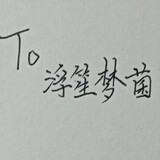 To
浮笙梦菌